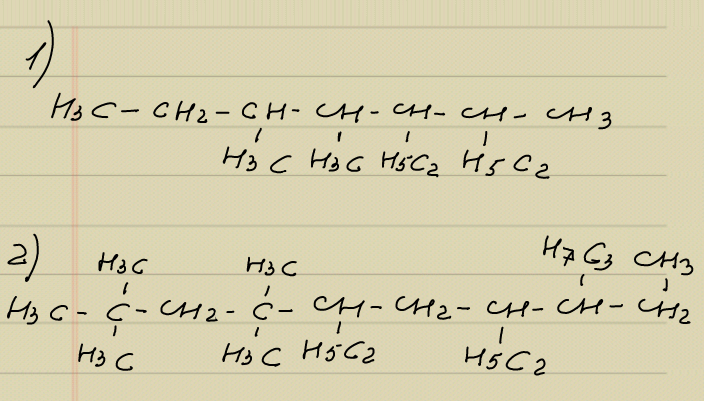 1)
H3C - CH2 - CH - CH - CH - CH - CH3
H3C H3C H5C2 H5C2
2)
H3C H3C H7C3 CH3
H3C - C - CH2 - C - CH - CH2 - CH - CH - CH2
H3C H3C H5C2 H5C2